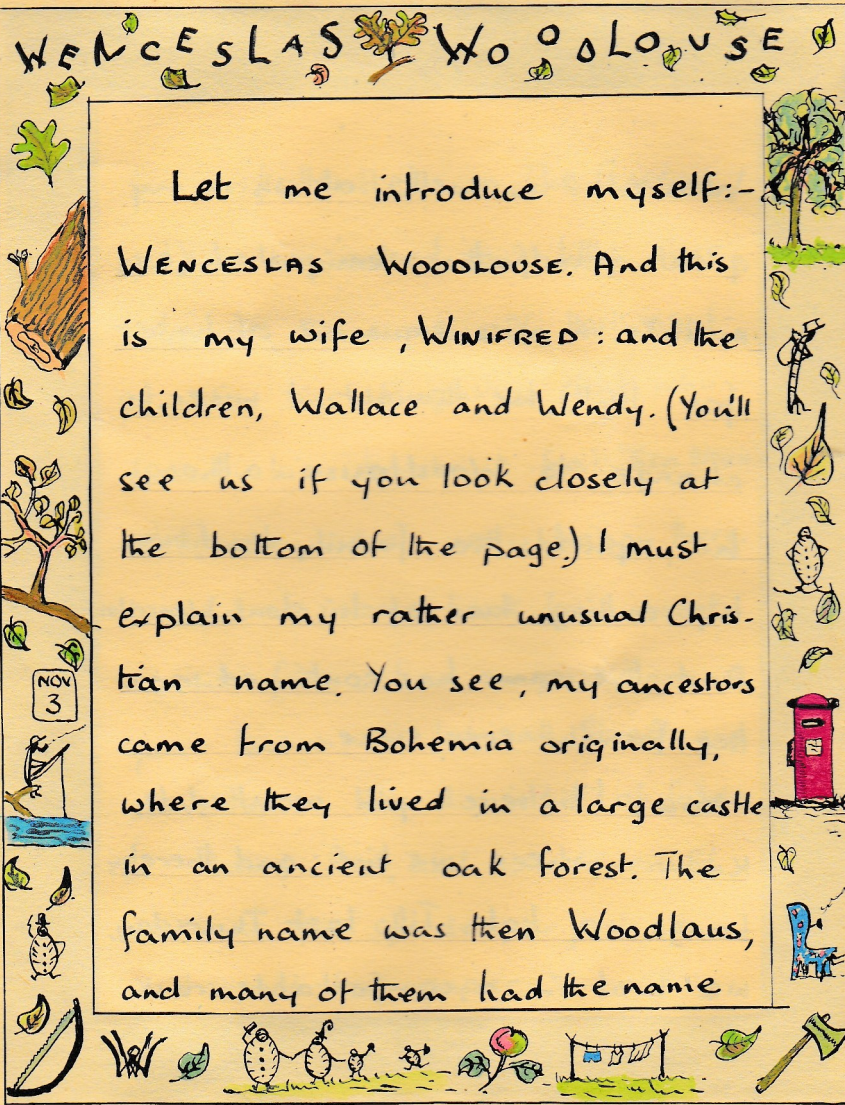 WENCESLAS WOODLOUSE
Let me introduce myself:-
WENCESLAS WOODLOUSE. And this
is my wife, WINIFRED : and the
children, Wallace and Wendy. (You'll
see us if you look closely at
the bottom of the page.) I must
explain my rather unusual Chris-
tian name. You see, my ancestors
came from Bohemia originally,
where they lived in a large castle
in an ancient oak forest. The
family name was then Woodlaus,
and many of them had the name
NOV
3